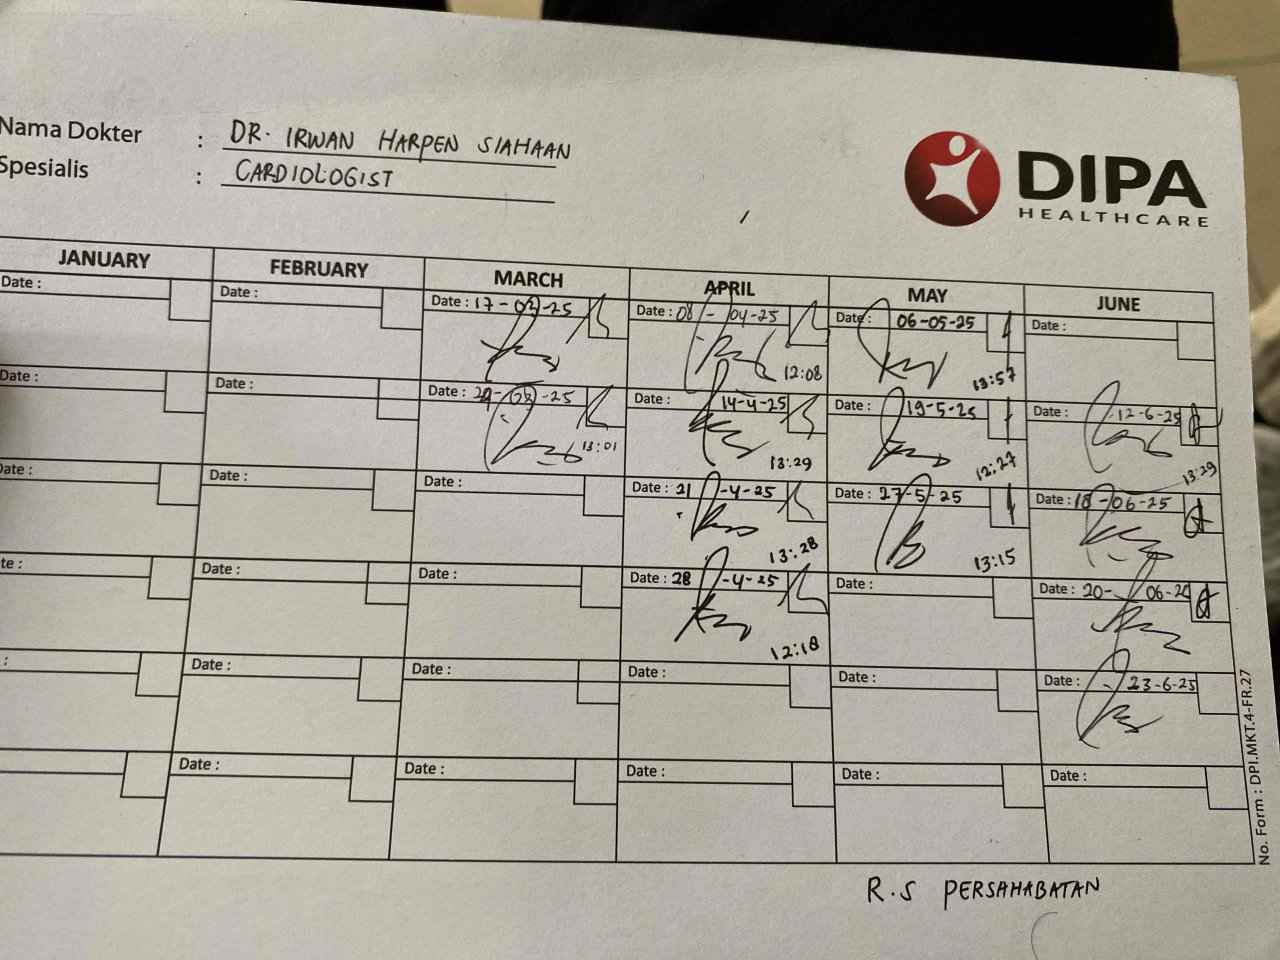 Nama Dokter : DR. IRWAN HARPEN SIAHAAN
Spesialis : CARDIOLOGIST
DIPA
HEALTHCARE
JANUARY FEBRUARY MARCH APRIL MAY JUNE
Date : Date : Date : 17-03-25 Date : 08-04-25 Date : 06-05-25 Date :
12:08 13:57
Date : Date : Date : 24-03-25 Date : 14-4-25 Date : 19-5-25 Date : 12-6-25
13:01 13:29 12:27 13:29
Date : Date : Date : Date : 21-4-25 Date : 27-5-25 Date : 18-06-25
13:28 13:15
te : Date : Date : Date : 28-4-25 Date : Date : 20-06-25
12:18
: Date : Date : Date : Date : Date : 23-6-25
Date : Date : Date : Date : Date :
No. Form : DPI.MKT.4-FR.27
R.S PERSAHABATAN